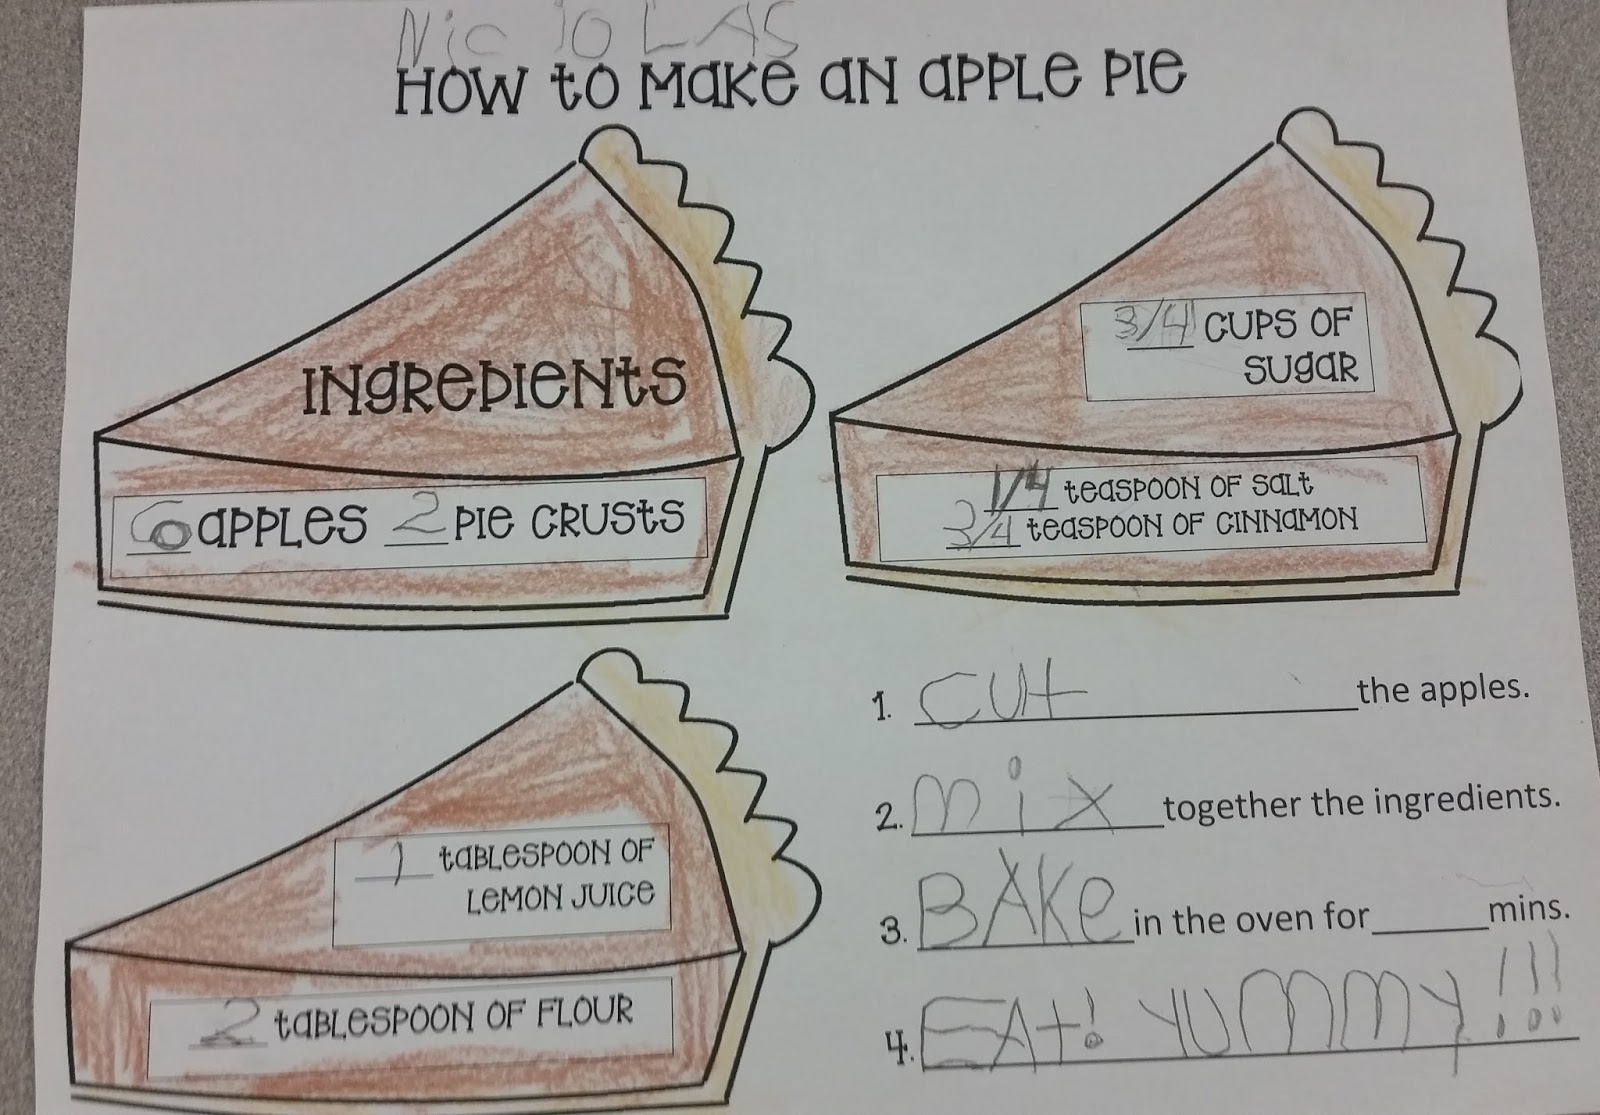 Nic io LAS
How to Make an Apple Pie
Ingredients
6 apples 2 pie crusts
3/4 cups of
sugar
1/4 teaspoon of salt
3/4 teaspoon of cinnamon
1 tablespoon of
lemon juice
2 tablespoon of flour
1. cut the apples.
2. mix together the ingredients.
3. BAKe in the oven for ______ mins.
4. EAt! YUMMY!!!